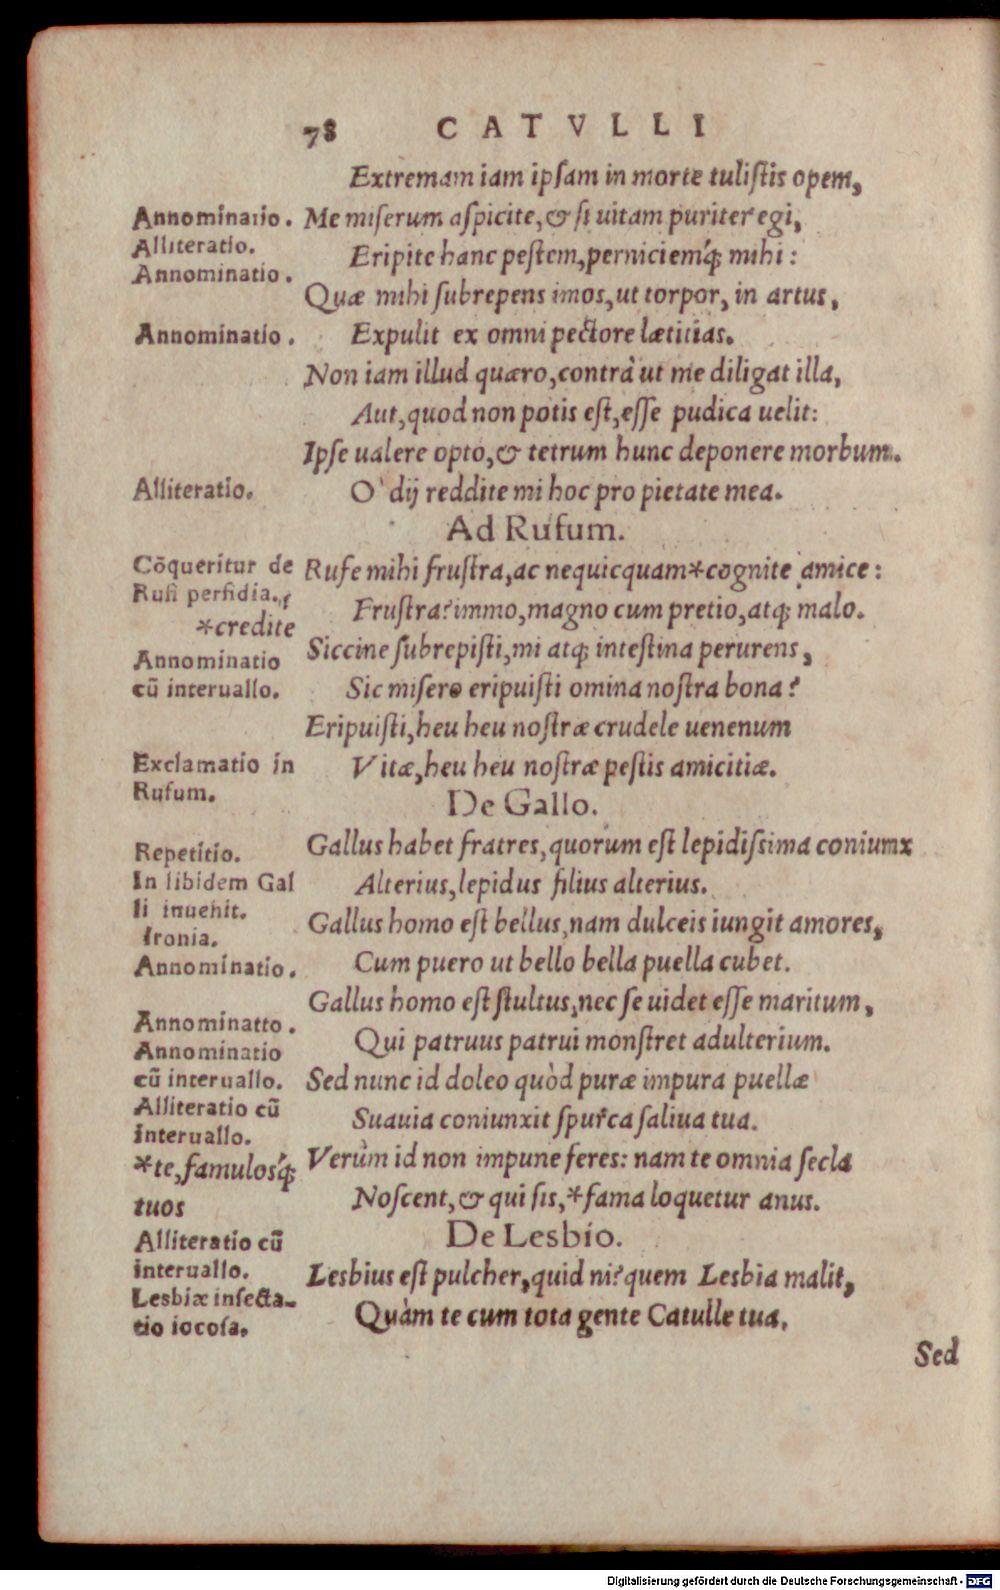 78 CATVLLI
Extremam iam ipsam in morte tulistis opem,
Annominatio. Me miserum aspicite, & si uitam puriter egi,
Alliteratio.
Eripite hanc pestem, perniciemq́; mihi:
Annominatio.
Quæ mihi subrepens imos, ut torpor, in artus,
Annominatio. Expulit ex omni pectore lætitias.
Non iam illud quæro, contrà ut me diligat illa,
Aut, quod non potis est, esse pudica uelit:
Ipse ualere opto, & tetrum hunc deponere morbum.
Alliteratio. O' dij reddite mi hoc pro pietate mea.
Ad Rufum.
Cōqueritur de Rufe mihi frustra, ac nequicquam*cognite amice:
Rufi perfidia.
Frustra? immo, magno cum pretio, atq; malo.
*credite
Siccine subrepisti, mi atq; intestina perurens,
Annominatio
cū interuallo. Sic misero eripuisti omina nostra bona?
Eripuisti, heu heu nostræ crudele uenenum
Exclamatio in Vitæ, heu heu nostræ pestis amicitiæ.
Rufum.
De Gallo.
Repetitio. Gallus habet fratres, quorum est lepidissima coniumx
In libidem Gal Alterius, lepidus filius alterius.
li inuehit.
Gallus homo est bellus, nam dulceis iungit amores,
Ironia.
Annominatio. Cum puero ut bello bella puella cubet.
Gallus homo est stultus, nec se uidet esse maritum,
Annominatto.
Qui patruus patrui monstret adulterium.
Annominatio
cū interuallo. Sed nunc id doleo quòd puræ impura puellæ
Alliteratio cū
Suauia coniunxit spurca saliua tua.
interuallo.
*te, famulosq́; Verùm id non impune feres: nam te omnia secla
tuos Noscent, & qui sis, *fama loquetur anus.
De Lesbio.
Alliteratio cū
interuallo. Lesbius est pulcher, quid ni? quem Lesbia malit,
Lesbiæ insecta-
tio iocosa. Quàm te cum tota gente Catulle tua,
Sed
Digitalisierung gefördert durch die Deutsche Forschungsgemeinschaft - DFG